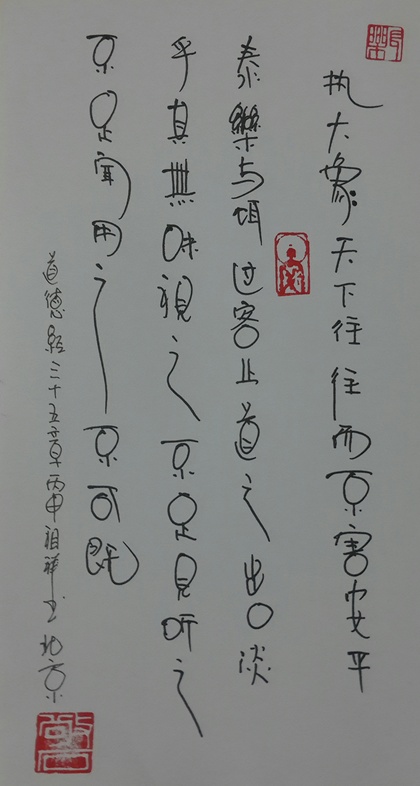 执大象天下往往而不害安平
泰樂与饵过客止道之出口淡
乎其無味視之不足見听之
不足闻用之不可既
道德經三十五章丙申祖书北京